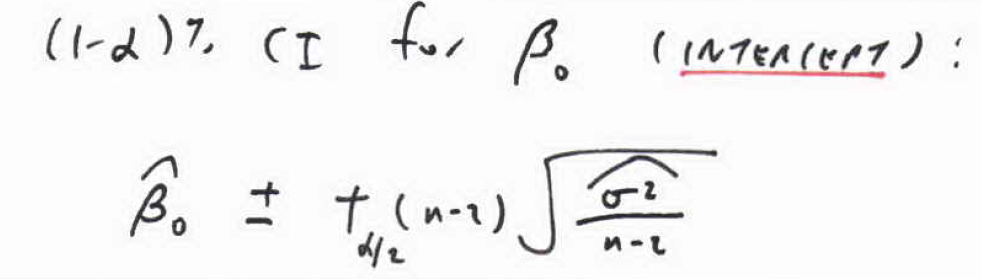 (1-α)% CI for β₀ (INTERCEPT):
β̂₀ ± t_{α/2}(n-2) √(σ̂²/(n-2))